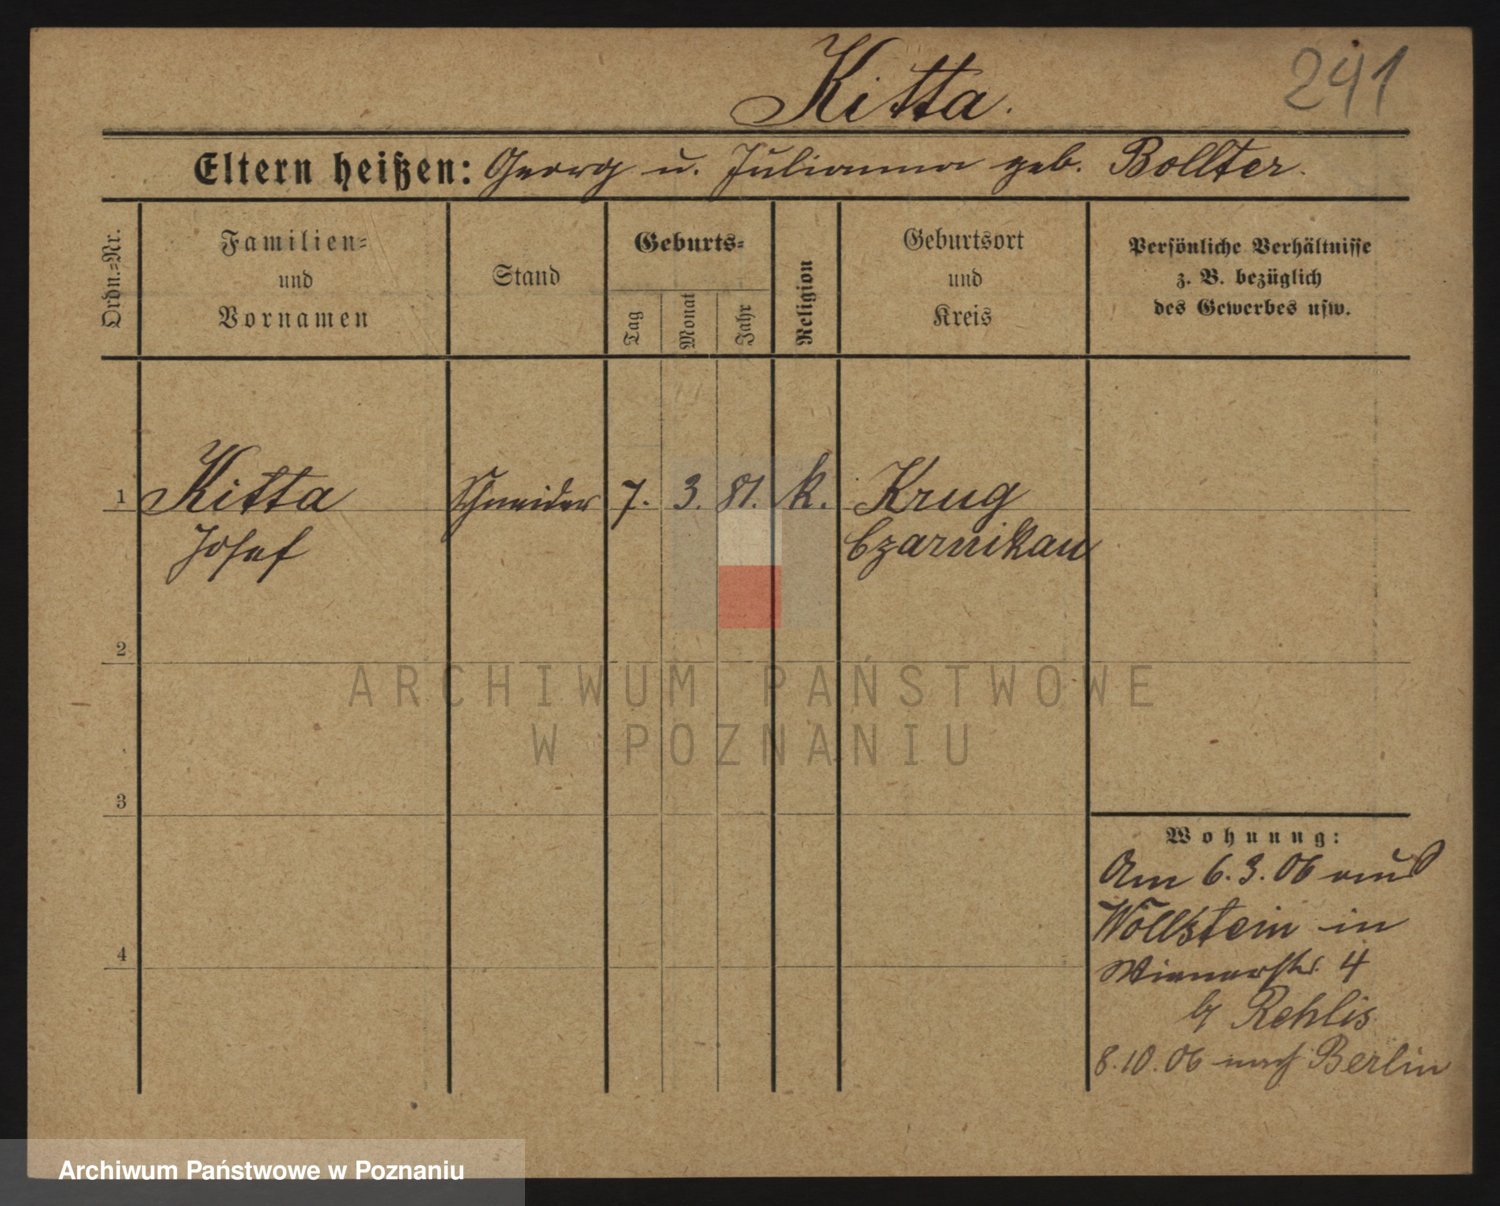 Kitta.
241
Eltern heißen: Georg u. Julianna geb. Bollter.
Ordn.=Nr.
Familien=
und
Vornamen
Stand
Geburts=
Tag
Monat
Jahr
Religion
Geburtsort
und
Kreis
Persönliche Verhältnisse
z. B. bezüglich
des Gewerbes usw.
1 Kitta Schneider 7. 3. 81. k. Krug
Josef Czarnikau
2
3
4
Wohnung:
Am 6.3.06 aus
Wollstein in
Wienerstr. 4
b/ Rehlis
8.10.06 nach Berlin
ARCHIWUM PAŃSTWOWE
W POZNANIU
Archiwum Państwowe w Poznaniu